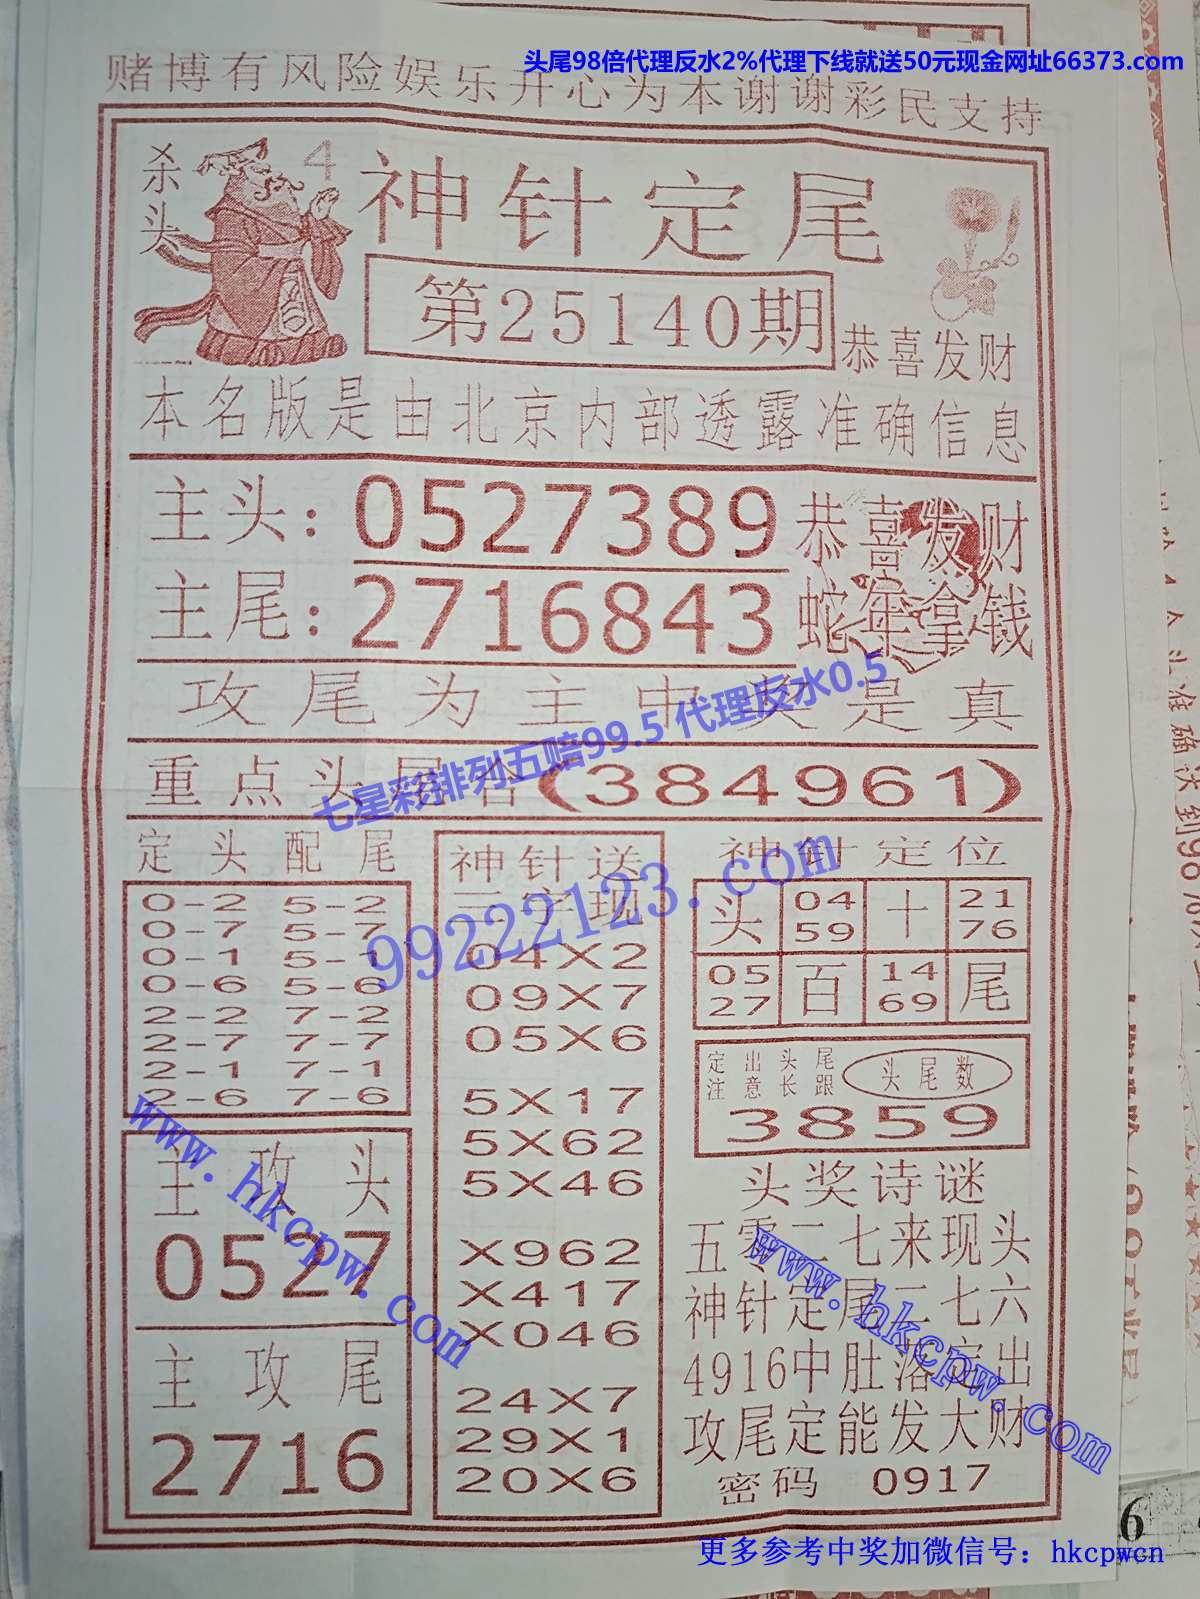 头尾98倍代理反水2%代理下线就送50元现金网址66373.com
赌博有风险娱乐开心为本谢谢彩民支持
杀头
4
神针定尾
第25140期
恭喜发财
本名版是由北京内部透露准确信息
主头：0527389 恭喜发财
主尾：2716843 蛇年拿钱
攻尾为主中奖是真
七星彩排列五赔99.5 代理反水0.5
重点头尾合(384961)
定头配尾
0-2 5-2
0-7 5-7
0-1 5-1
0-6 5-6
2-2 7-2
2-7 7-7
2-1 7-1
2-6 7-6
主攻头
0527
主攻尾
2716
神针送
三字现
99222123.com
04X2
09X7
05X6
5X17
5X62
5X46
X962
X417
X046
24X7
29X1
20X6
神针定位
头 04 十 21
59 76
05 百 14 尾
27 69
定出头尾
注意长跟
头尾数
3859
头奖诗谜
五零二七来现头
神针定尾二七六
4916中肚落定出
攻尾定能发大财
密码 0917
www.hkcpw.com
www.hkcpw.com
6
更多参考中奖加微信号：hkcpwcn